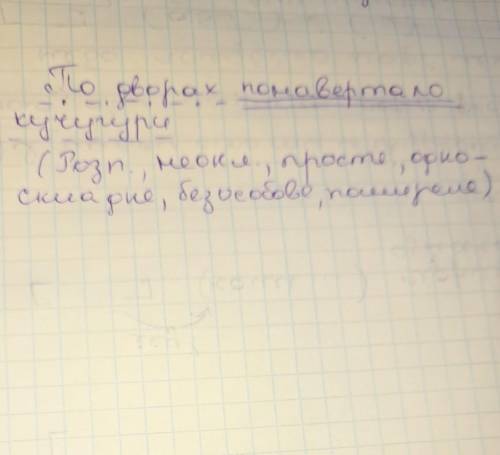 По дворах понавертало
кучугури
(Розп., неокл., просте, одно-
складне, безособове, поширене)